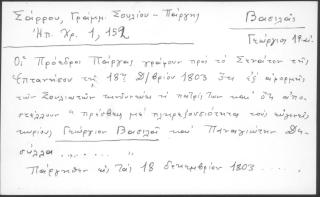 Σάρρου, Γραμμ. Σουλίου - Πάργης Βασιλᾶς
Ἠπ. Χρ. 1, 152 Γεώργιος
Οἱ Πρόεδροι Πάργας γράφουν πρὸς τὸ Σενάτον τῆς
Ἑπτανήσου τῇ 18ῃ Δ/βρίου 1803 ὅτι ἐξ ἀφορμῆς
τῶν Σουλιωτῶν κινδυνεύει ἡ πατρίς των καὶ ὅτι ἀπο-
στέλλουν πρέσβεις μὲ πληρεξουσιότητα τοὺς εὐγενεῖς
κυρίους Γεώργιον Βασιλᾶ καὶ Παναγιώτην Δε-
σύλλα .........
Πάργηθεν εἰς τὰς 18 δεκεμβρίου 1803 ....